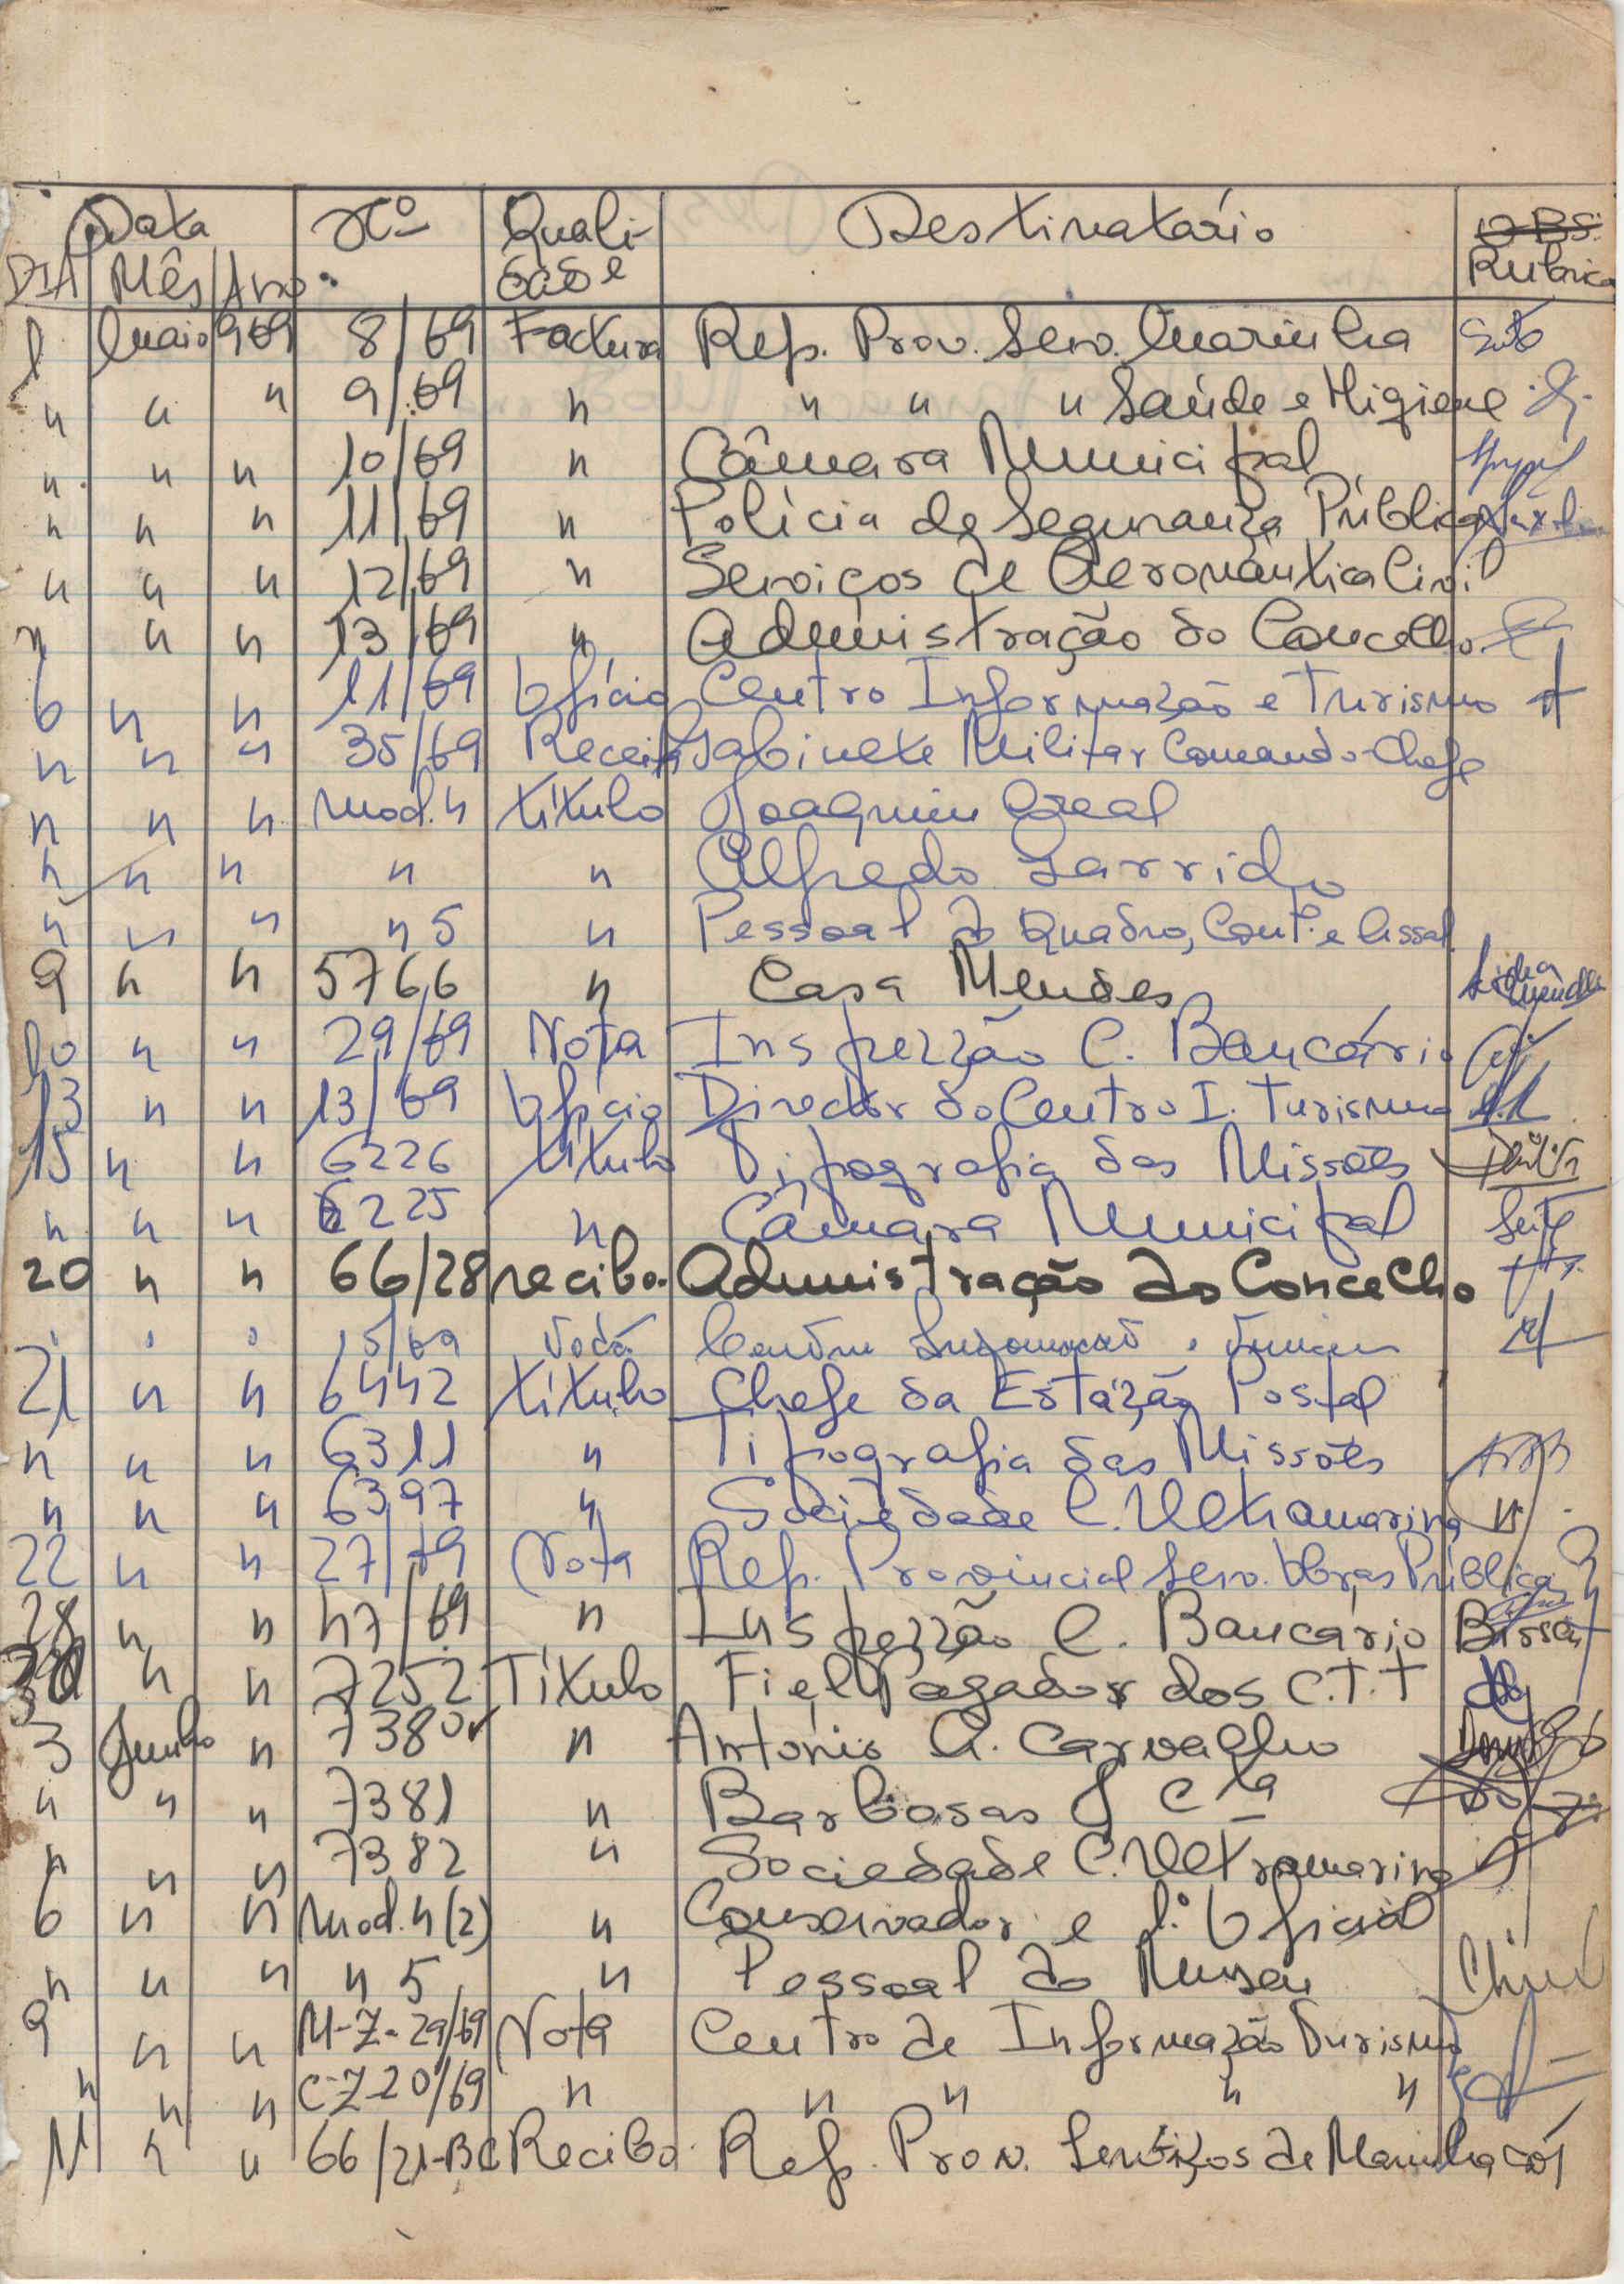 Data Nº Quali- Destinatário OBS:
DIA Mês Ano dade Rubrica
1 Maio 969 8/69 Factura Rep. Prov. Serv. Marinha
" " " 9/69 " " " " Saúde e Higiene
" " " 10/69 " Câmara Municipal
" " " 11/69 " Polícia de Segurança Pública
" " " 12/69 " Serviços de Aeronáutica Civil
" " " 13/69 " Administração do Concelho
6 " " 11/69 Ofício Centro Informação e Turismo
" " " 35/69 Receita Gabinete Militar Comando-Chefe
" " " Mod. 4 título Joaquim
" " " " " Alfredo Garrido
" " " " 5 " Pessoal do Quadro, Cont. e Assal.
9 " " 5766 " Casa Mendes
10 " " 29/69 Nota Inspecção C. Bancário
13 " " 13/69 Ofício Director do Centro I. Turismo
15 " " 6226 título Tipografia das Missões
" " " 6225 " Câmara Municipal
20 " " 66/28 recibo. Administração do Concelho
15/69
21 " " 6442 título Chefe da Estação Postal
" " " 6311 " Tipografia das Missões
" " " 6397 " Sociedade C. Ultramarina
22 " " 27/69 Nota Rep. Provincial Serv. Obras Pública
28 " " 47/69 " Inspecção C. Bancário
30 " " 7252 Título Fiel Pagador dos C.T.T
3 Junho " 7380 " António A. Carvalho
" " " 7381 " Barbosas & Cta
" " " 7382 " Sociedade C. Ultramarina
6 " " Mod. 4 (2) " Conservador e 1.º Oficial
" " " " 5 " Pessoal do Museu
9 " " M-7-29/69 Nota Centro de Informação Turismo
" " " C-7-20/69 " " " " "
11 " " 66/21-BC Recibo Rep. Prov. Serviços de Marinha